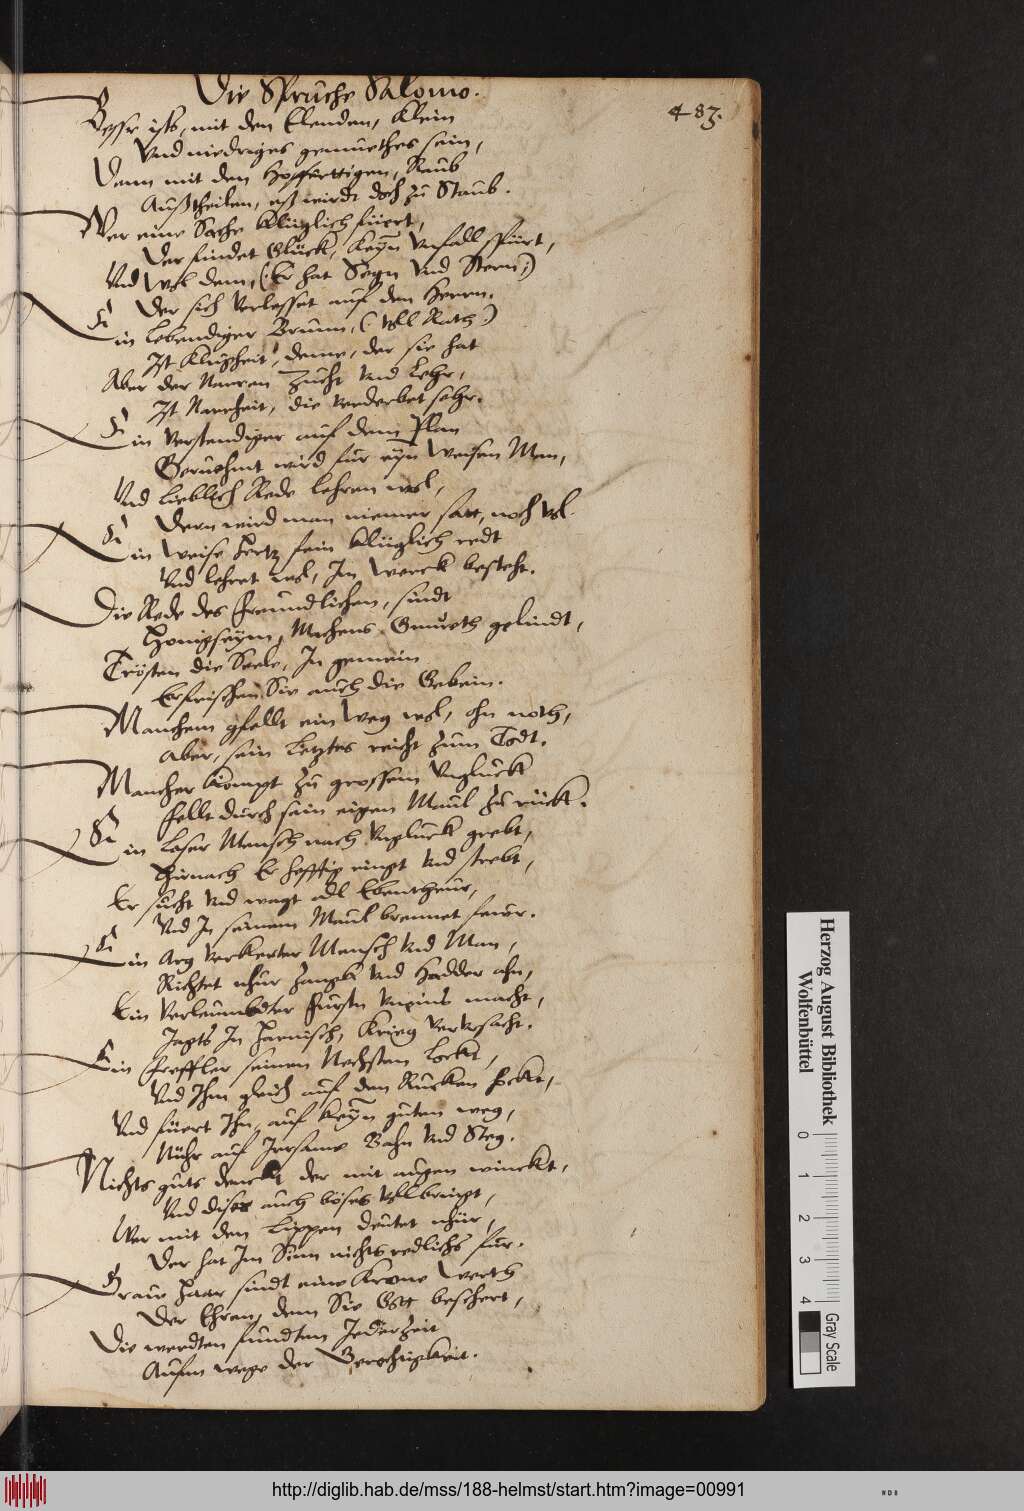 Die Sprüche Salomo.
483.
Besser ists, mit den Elenden, Klein
Vnd niedriges gemuethes sein,
Denn mit den Hoffertigen, Raub
Außtheilen, eß wirdt doch zu Staub.
Wer eine Sache klüglich füert,
Der findet Glück, keyn Vnfall spürt,
Vnd Wol dem, (: Er hat Segn Vnd Stern :)
Der sich Verlesset auf den Herrn.
Ein lebendiger Brunn, (: Voll Rath :)
Ist Klugheit, deme, der sie hat
Aber der Narren Zucht Vnd Lehr,
Ist Narrheit, die verderbet sehr.
Ein Verstendiger auf dem Plan
Geruehmt wird für eyn Weisen Man,
Vnd lieblich Rede lehren wol,
Dern wird man niemer satt, noch Vol.
Ein Weise Hertz fein klüglich redt
Vnd lehret wol, Im Werck besteht.
Die Rede des Freundlichen, sindt
Honigseym, Machens Gmueth gelindt,
Trösten die Seele, In gemein
Erfrischen Sie auch die Gebein.
Manchem gfellt ein Weg wol, ohn noth,
Aber, sein Letztes reicht zum Todt.
Mancher kompt zu grossem Vnglück
Fellt durch sein eigen Maul zu rück.
Ein Loser Mensch nach Vnglück grebt,
Hirnach Er hefftig ringt Vnd strebt,
Er sucht Vnd wagt all Ebentheur,
Vnd In seinem Maul brennet feuer.
Ein Arg Verkerter Mensch Vnd Man,
Richtet nhur Zangk Vnd Hadder ahn,
Ein Verleumbdter Fursten Vneins macht,
Jagts In Harnisch, Krieg Verursacht.
Ein Freffler seinen Nechsten Lockt,
Vnd Ihm gleich auf den Rucken hockt,
Vnd füert Ihn, auf keyn guten weg,
Nuhr auf Irrsame Bahn Vnd Steg.
Nichts guts denckt der mit augen winckt,
Vnd diser auch böses Vollbringt,
Wer mit den Lippen deutet nhür,
Der hat Im Sinn nichts redlichs für.
Graue Haar sindt eine Krone Werth
Der Ehren, dem Sie Gott beschert,
Die werdten fundten Jederzeit
Aufm wege der Gerechtigkeit.
Herzog August Bibliothek
Wolfenbüttel
0 1 2 3 4
Gray Scale
http://diglib.hab.de/mss/188-helmst/start.htm?image=00991